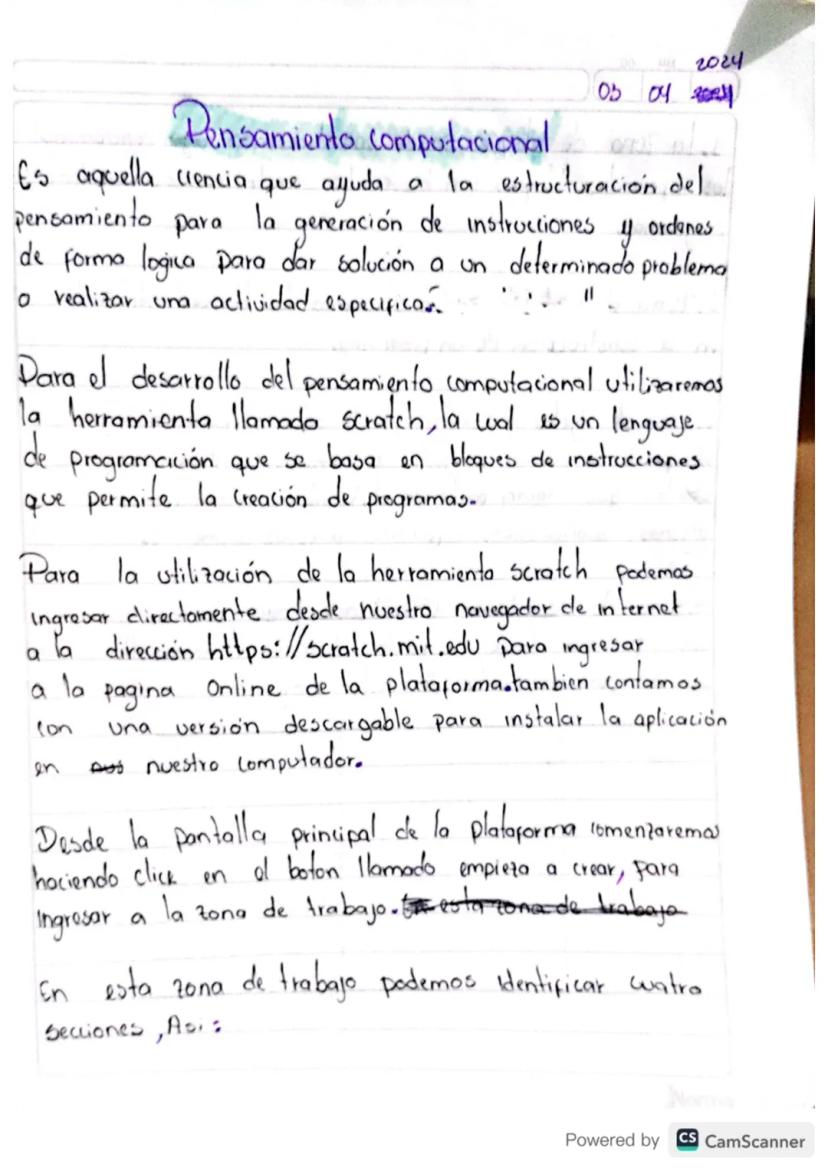 2024
03 04 2024
Pensamiento computacional
Es aquella ciencia que ayuda a la estructuración del
pensamiento para la generación de instrucciones y ordenes
de forma logica para dar solución a un determinado problema
o realizar una actividad especifica.
Para el desarrollo del pensamiento computacional utilizaremos
la herramienta llamada scratch, la cual es un lenguaje
de programación que se basa en bloques de instrucciones
que permite la creación de programas.
Para la utilización de la herramienta scratch podemos
ingresar directamente desde nuestro navegador de internet
a la dirección https://scratch.mit.edu para ingresar
a la pagina Online de la plataforma.tambien contamos
con una versión descargable para instalar la aplicación
en nuestro computador.
Desde la pantalla principal de la plataforma comenzaremos
haciendo click en el boton llamado empieza a crear, para
Ingresar a la zona de trabajo. esta zona de trabajo
En esta zona de trabajo podemos identificar cuatro
secciones, Asi:
Norma
Powered by CS CamScanner